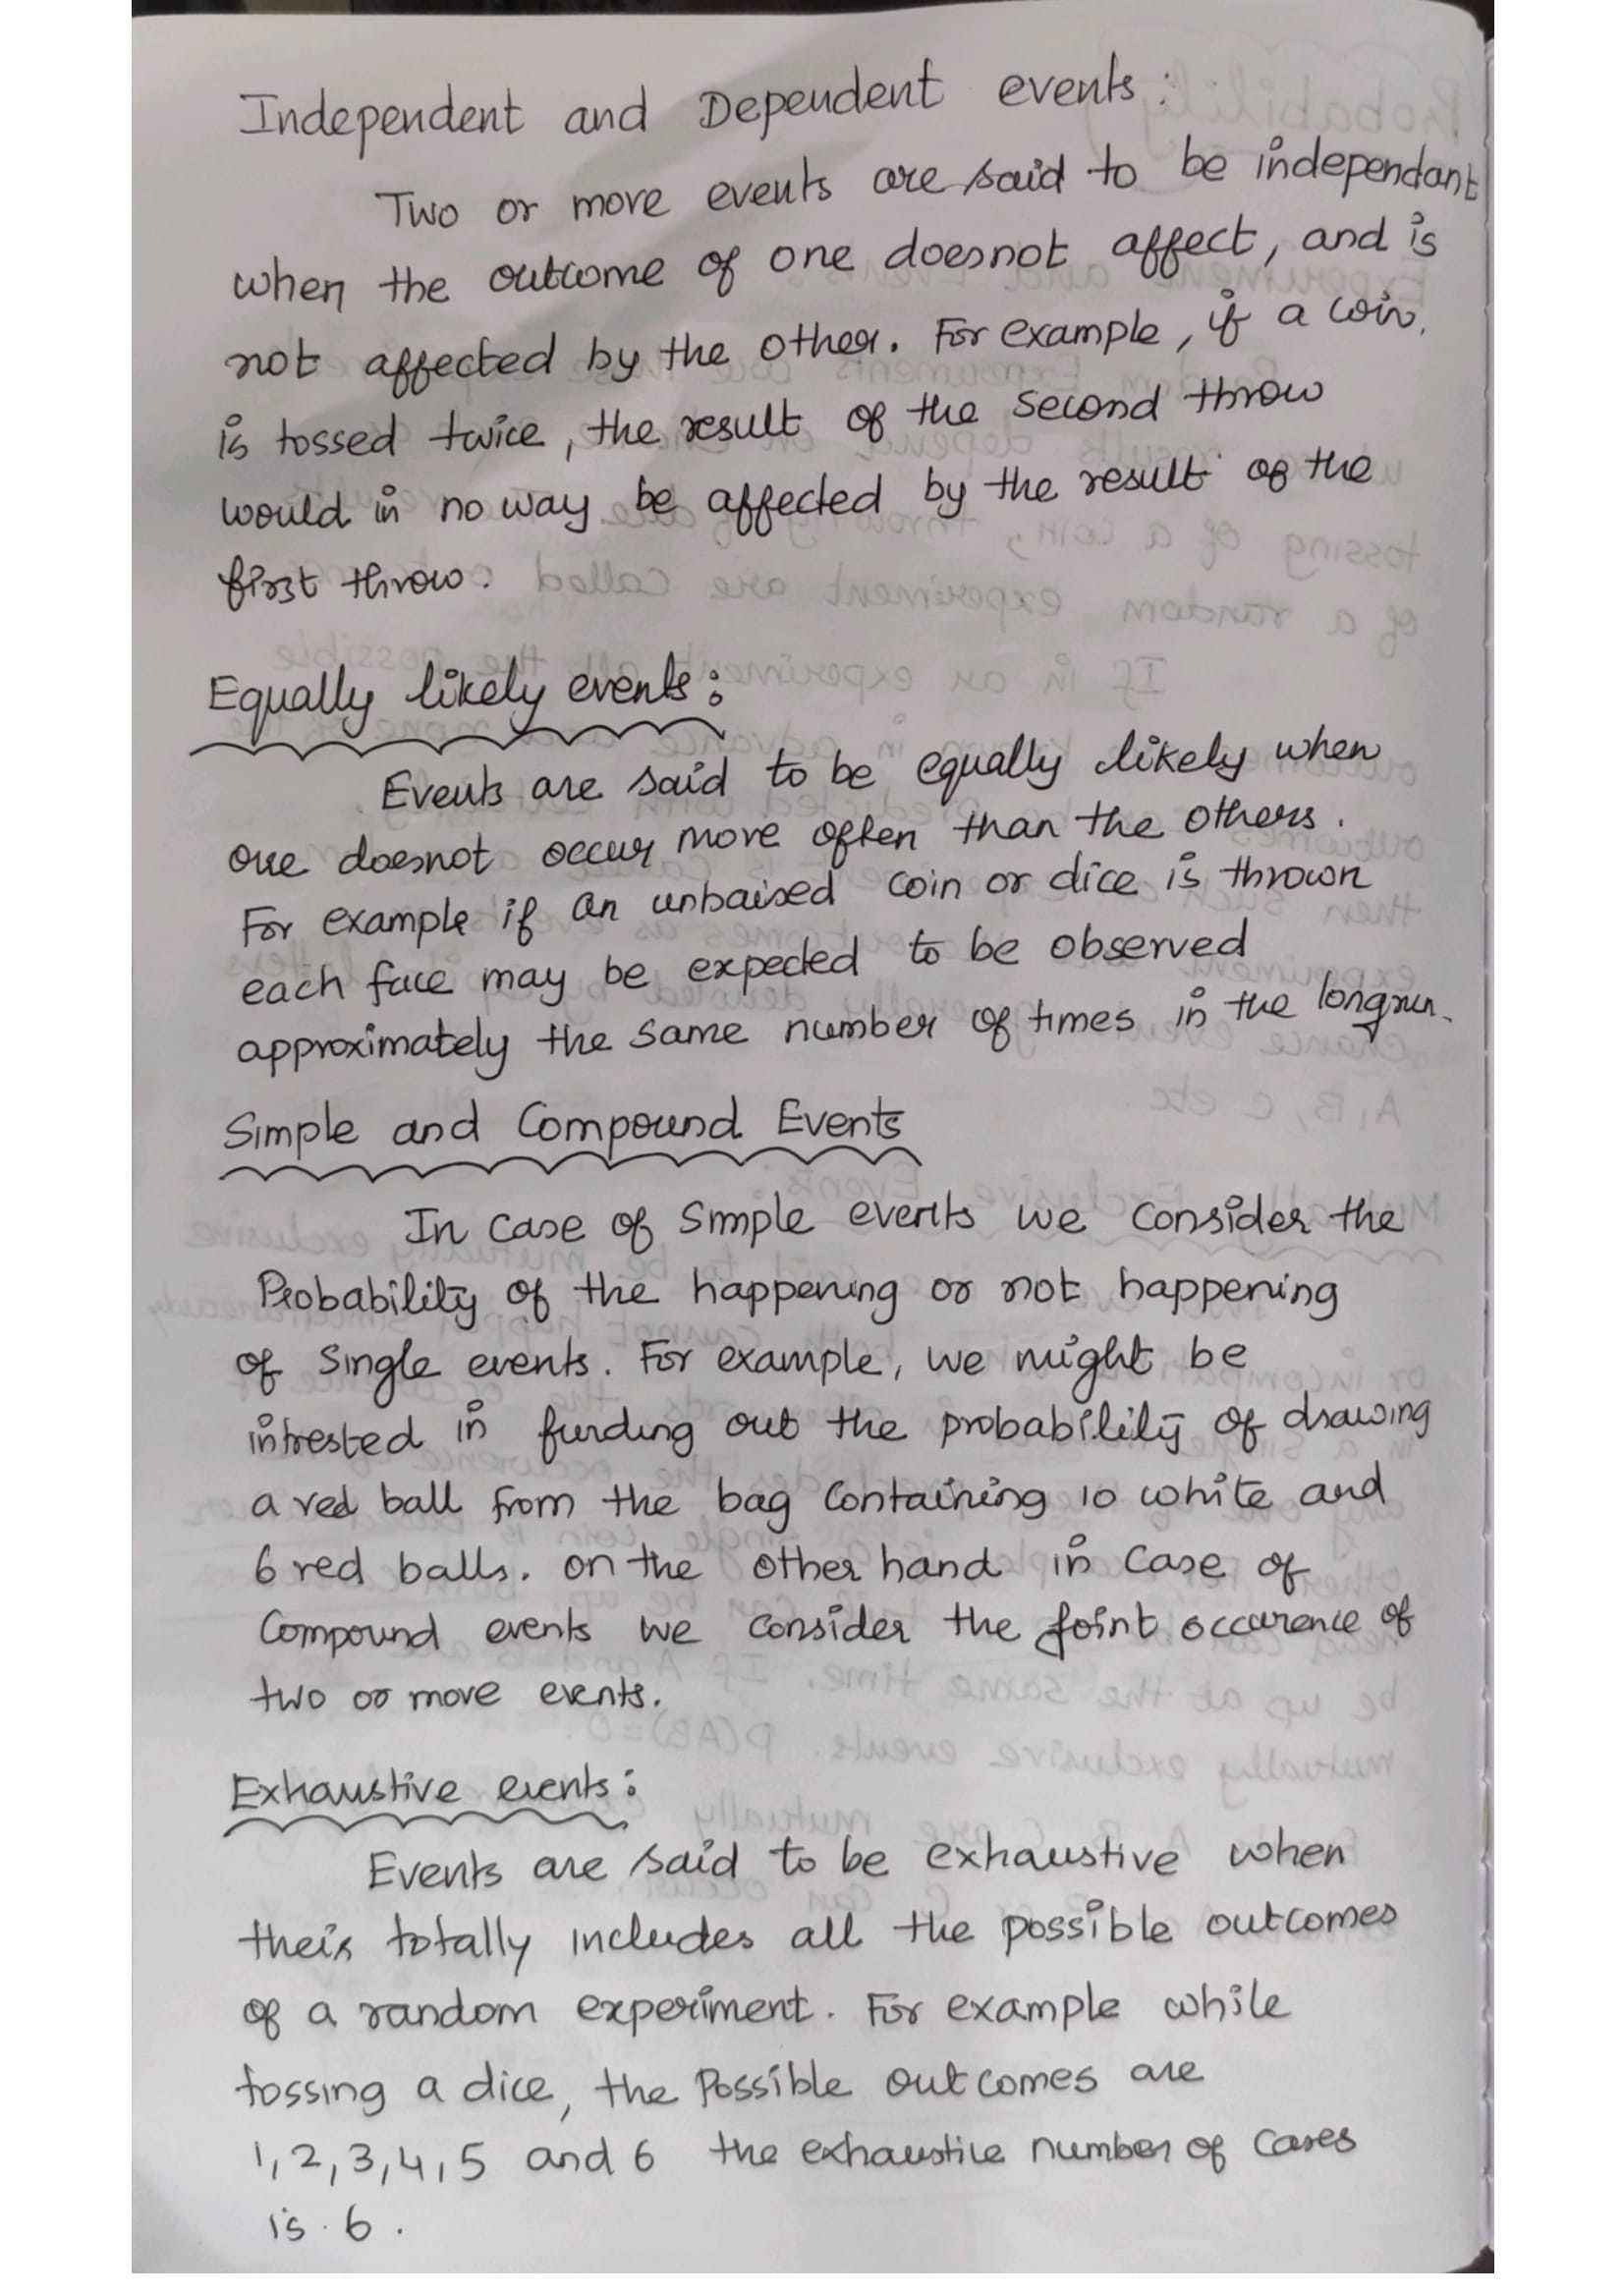 Independent and Dependent events:
Two or more events are said to be independant
when the outcome of one doesnot affect, and is
not affected by the other. For example, if a coin.
is tossed twice, the result of the second throw
would in no way be affected by the result of the
first throw.
Equally likely events:
Events are said to be equally likely when
one doesnot occur more often than the others.
For example if an unbaised coin or dice is thrown
each face may be expected to be observed
approximately the same number of times in the longrun.
Simple and Compound Events
In case of Simple events we consider the
Probability of the happening or not happening
of Single events. For example, we might be
intrested in finding out the probability of drawing
a red ball from the bag Containing 10 white and
6 red balls. on the other hand in Case of
Compound events we consider the joint occurence of
two or more events.
Exhaustive events:
Events are said to be exhaustive when
their totally includes all the possible outcomes
of a random experiment. For example while
tossing a dice, the Possible outcomes are
1, 2, 3, 4, 5 and 6 the exhaustive number of Cases
is 6.